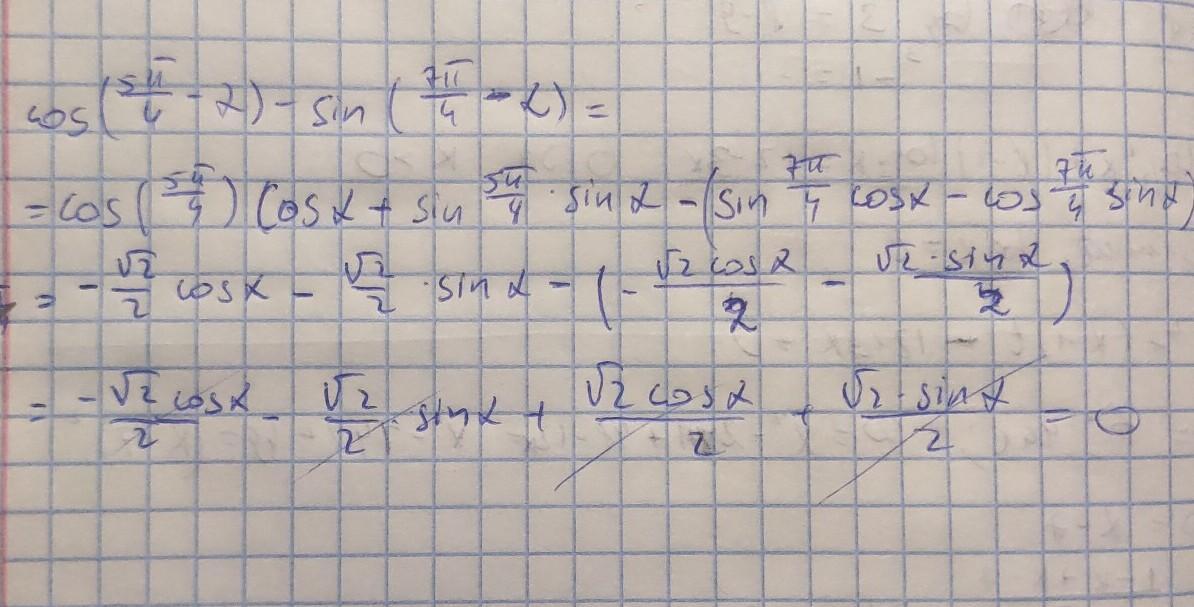 cos(5π/4 - α) - sin(7π/4 - α) =
= cos(5π/4) cosα + sin 5π/4 · sinα - (sin 7π/4 cosα - cos 7π/4 sinα)
= -√2/2 cosα - √2/2 · sinα - (-√2 cosα/2 - √2 · sinα/2)
= -√2 cosα/2 - √2/2 · sinα + √2 cosα/2 + √2 · sinα/2 = 0